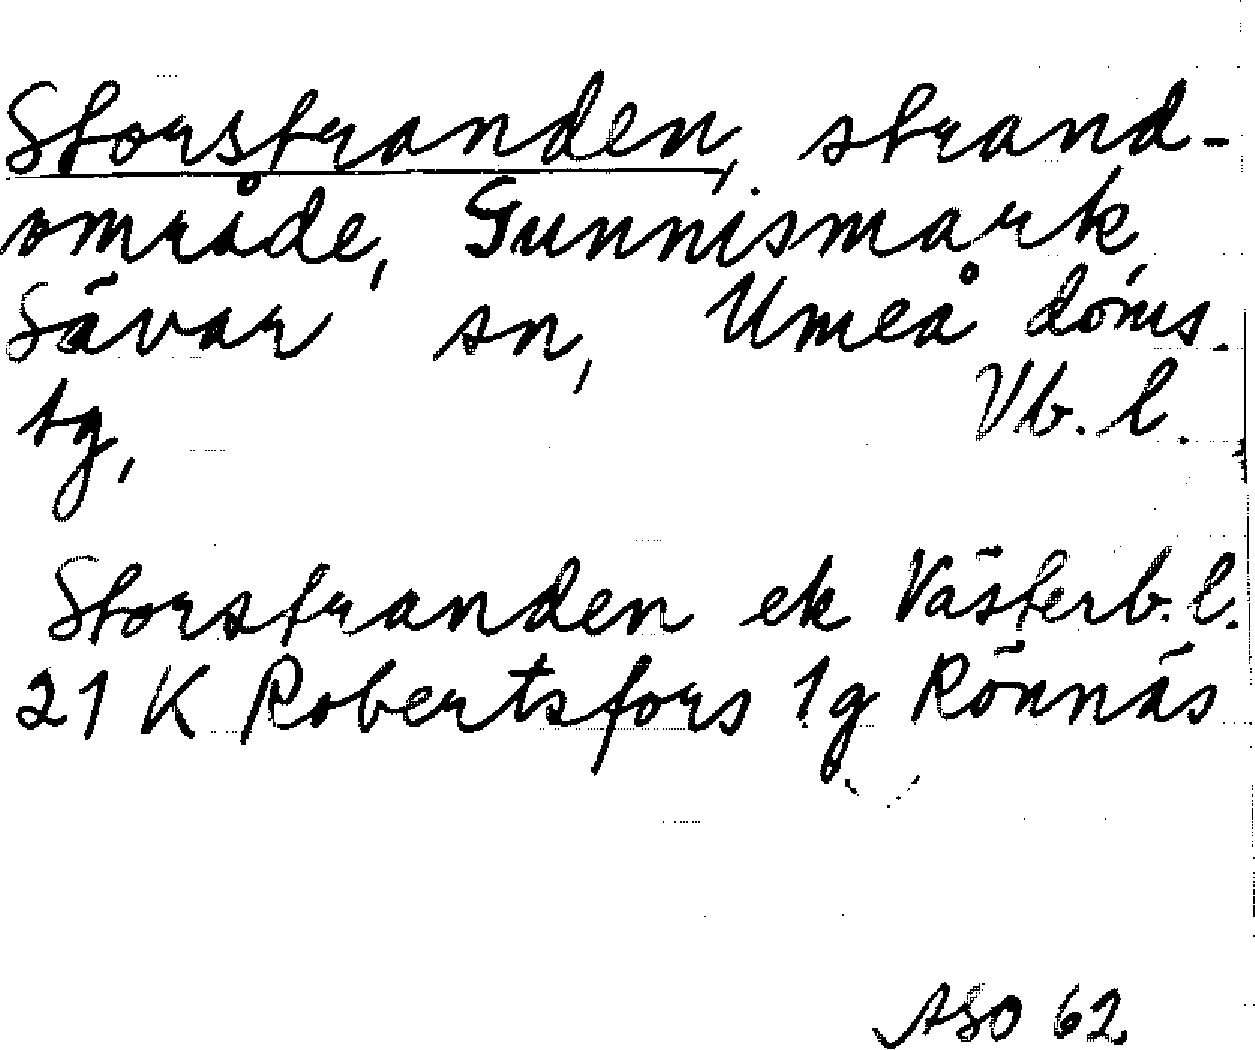 Storstranden, strand-
område, Gunnismark,
Sävar sn, Umeå doms.
tg, Vb. l.
Storstranden ek Västerb. l.
21 K Robertsfors 1g Rönnäs
ASO 62